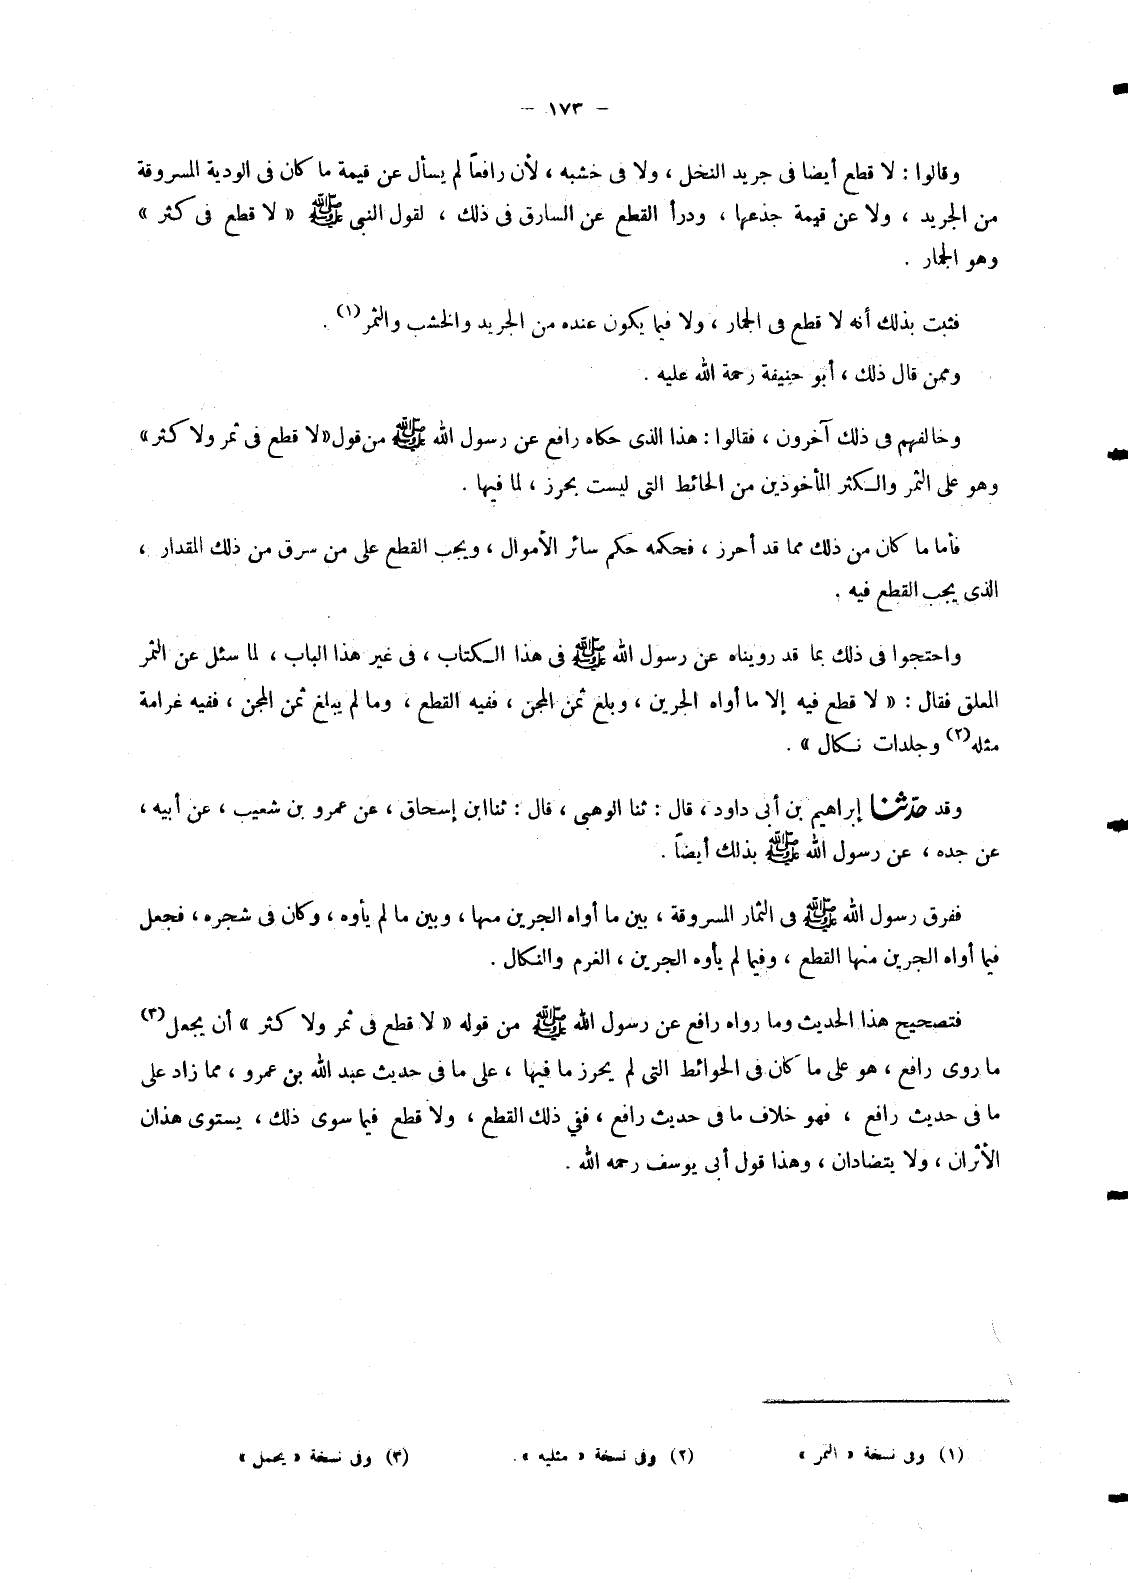 – ١٧٣ –
وقالوا : لا قطع أيضا فى جريد النخل ، ولا فى خشبه ، لأن رافعاً لم يسأل عن قيمة ما كان فى الودية المسروقة
من الجريد ، ولا عن قيمة جذعها ، ودرأ القطع عن السارق فى ذلك ، لقول النبى ﷺ « لا قطع فى كثر »
وهو الجمار .
فثبت بذلك أنه لا قطع فى الجمار ، ولا فيما يكون عنده من الجريد والخشب والثمر(١) .
وممن قال ذلك ، أبو حنيفة رحمة الله عليه .
وخالفهم فى ذلك آخرون ، فقالوا : هذا الذى حكاه رافع عن رسول الله ﷺ من قول «لا قطع فى ثمر ولا كثر»
وهو على الثمر والكثر المأخوذين من الحائط التى ليست بحرز ، لما فيها .
فأما ما كان من ذلك مما قد أحرز ، فحكمه حكم سائر الأموال ، ويجب القطع على من سرق من ذلك المقدار ،
الذى يجب القطع فيه .
واحتجوا فى ذلك بما قد رويناه عن رسول الله ﷺ فى هذا الكتاب ، فى غير هذا الباب ، لما سئل عن الثمر
المعلق فقال : « لا قطع فيه إلا ما أواه الجرين ، وبلغ ثمن المجن ، ففيه القطع ، وما لم يبلغ ثمن المجن ، ففيه غرامة
مثله(٢) وجلدات نكال » .
وقد حدّثنا إبراهيم بن أبى داود ، قال : ثنا الوهبى ، قال : ثنا ابن إسحاق ، عن عمرو بن شعيب ، عن أبيه ،
عن جده ، عن رسول الله ﷺ بذلك أيضاً .
ففرق رسول الله ﷺ فى الثمار المسروقة ، بين ما أواه الجرين منها ، وبين ما لم يأوه ، وكان فى شجره ، فجعل
فيما أواه الجرين منها القطع ، وفيما لم يأوه الجرين ، الغرم والنكال .
فتصحيح هذا الحديث وما رواه رافع عن رسول الله ﷺ من قوله « لا قطع فى ثمر ولا كثر » أن يجعل(٣)
ما روى رافع ، هو على ما كان فى الحوائط التى لم يحرز ما فيها ، على ما فى حديث عبد الله بن عمرو ، مما زاد على
ما فى حديث رافع ، فهو خلاف ما فى حديث رافع ، ففى ذلك القطع ، ولا قطع فيما سوى ذلك ، يستوى هذان
الأثران ، ولا يتضادان ، وهذا قول أبى يوسف رحمه الله .
(١) وفى نسخة « التمر » (٢) وفى نسخة « مثليه » . (٣) وفى نسخة « يحمل »